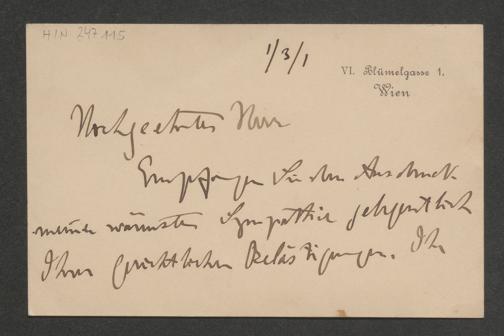 H.I.N. 247115
1/3/1
VI. Blümelgasse 1.
Wien
Hochgeehrter Herr
Empfangen Sie den Ausdruck
meiner wärmsten Sympathie gelegentlich
Ihrer gerichtlichen Belästigungen. Ihr